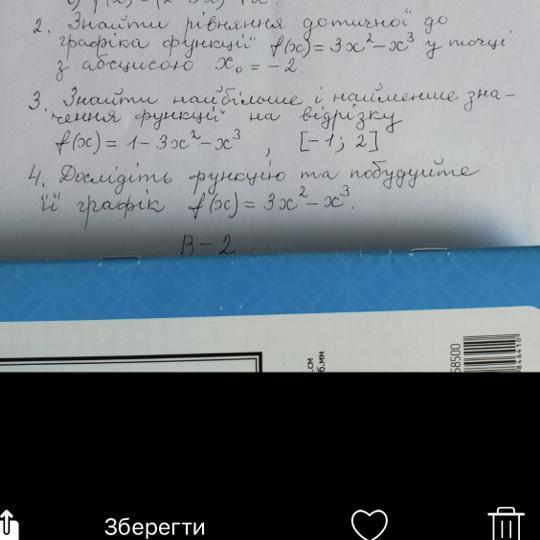 2. Знайти рівняння дотичної до
графіка функції f(x) = 3x² – x³ у точці
з абсцисою x₀ = – 2.
3. Знайти найбільше і найменше зна-
чення функції на відрізку
f(x) = 1 – 3x² – x³ , [–1; 2]
4. Дослідіть функцію та побудуйте
її графік f(x) = 3x² – x³.
В – 2
см
б.мм
58500
846410
Зберегти